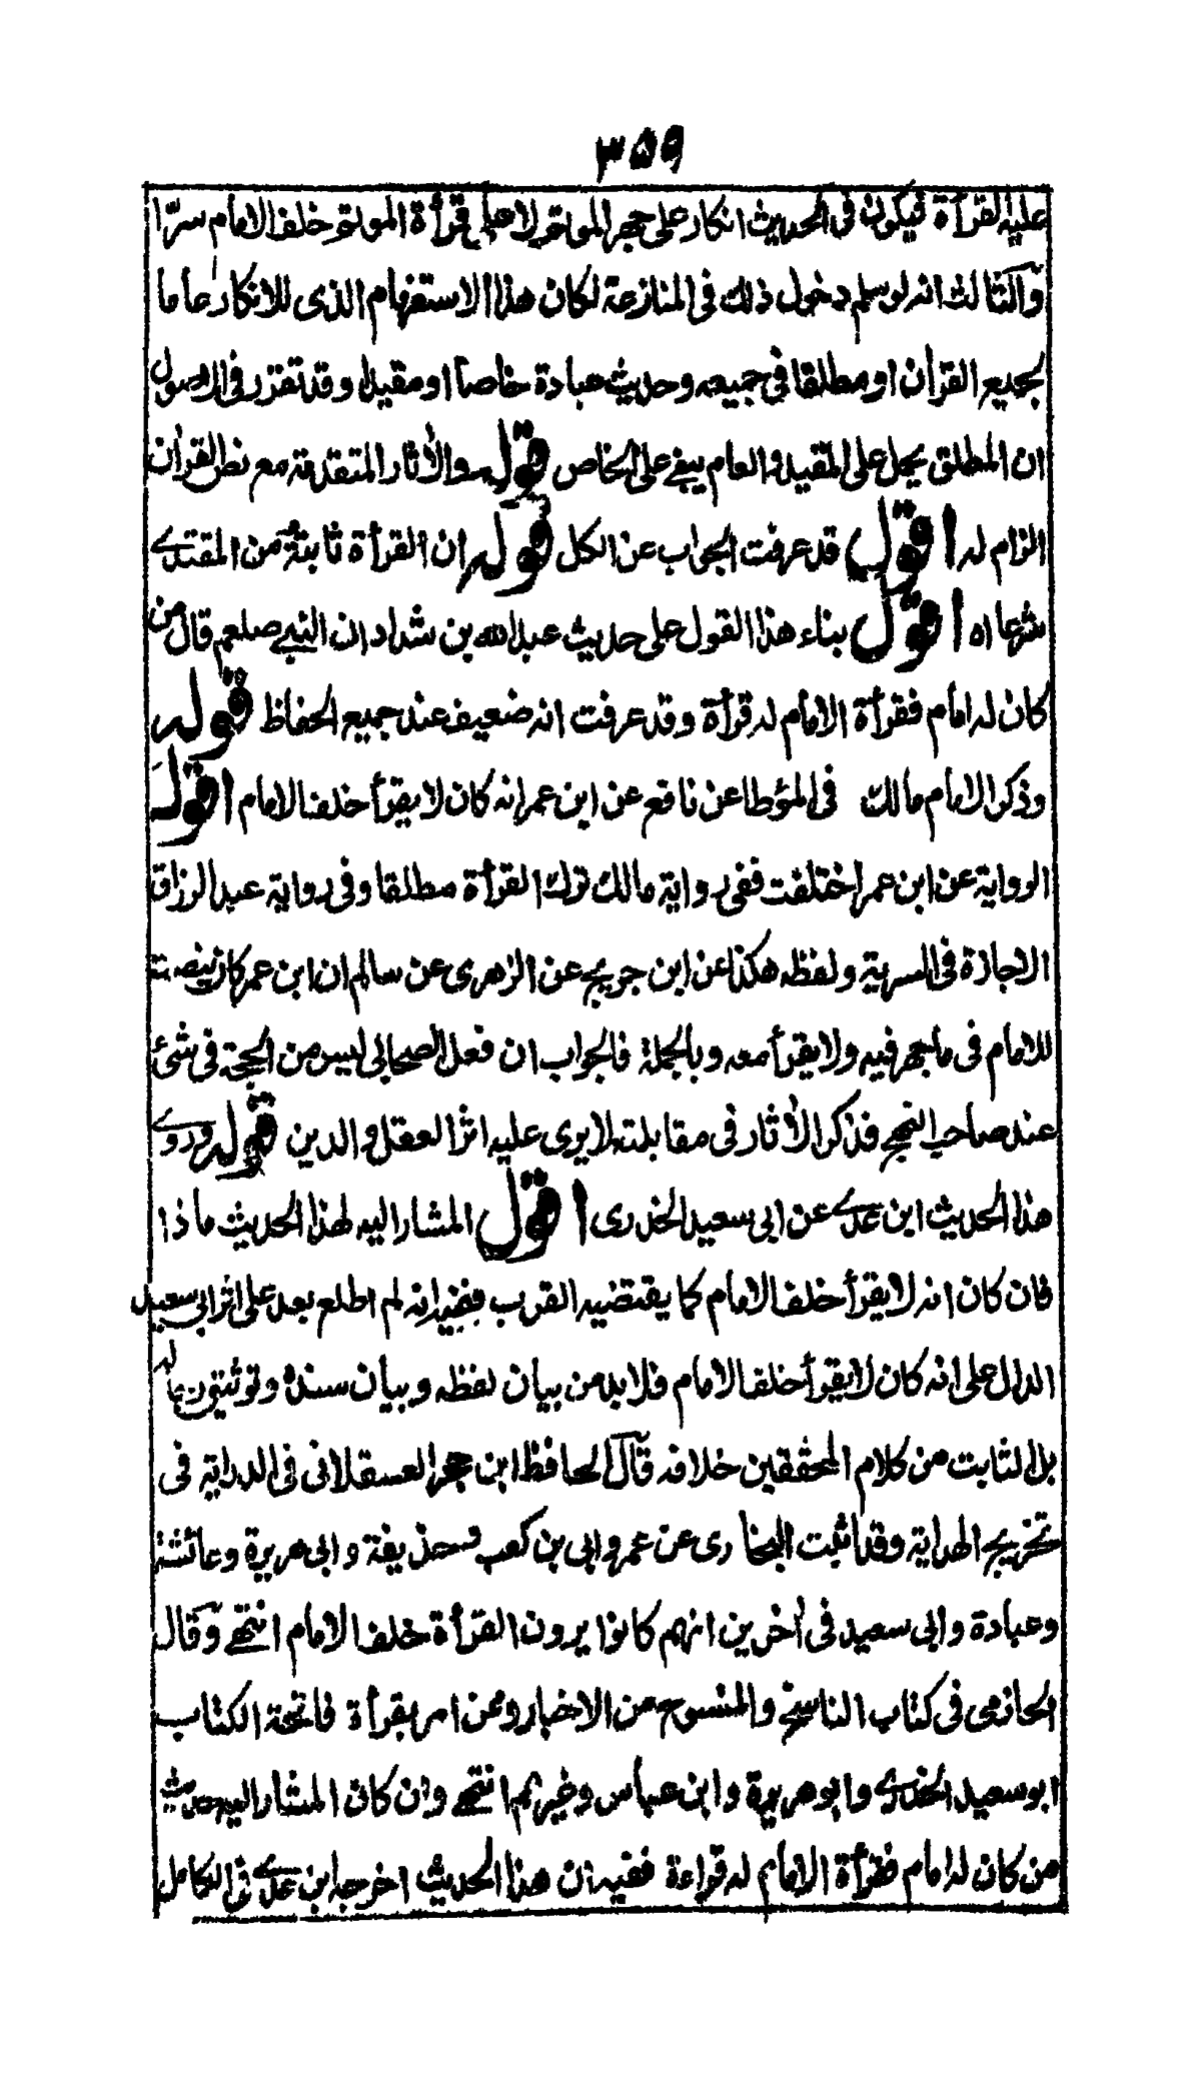 ٣٥٩
عليه القرأة فيكون في الحديث انكار على جهر الموتم لا على قرأة الموتم خلف الامام سرّا
وآلثالث انه لو سلم دخول ذلك في المنازعة لكان هذا الاستفهام الذى للانكار عاما
لجميع القرأن او مطلقا في جميعه وحديث عبادة خاصا او مقيدا وقد تقرر في الاصول
ان المطلق يحمل على المقيد والعام يبنى على الخاص قوله والأثار المتقدمة مع نص القرأن
الزام له اقول قد عرفت الجواب عن الكل قوله ان القرأة ثابتة من المقتدے
شرعا اه اقول بناء هذا القول على حديث عبد الله بن شداد ان النبے صلعم قال من
كان له امام فقرأة الامام له قرأة وقد عرفت انه ضعيف عند جميع الحفاظ قوله
وذكر الامام مالك في المؤطا عن نافع عن ابن عمر انه كان لا يقرأ خلف الامام اقول
الرواية عن ابن عمر اختلفت ففى رواية مالك ترك القرأة مطلقا وفى رواية عبد الرزاق
الاجازة في السرية ولفظه هكذا عن ابن جريج عن الزهرى عن سالم ان ابن عمر كان ينصت
للامام فى ما جهر فيه ولا يقرأ معه وبالجملة فالجواب ان فعل الصحابى ليس من الحجة فى شئ
عند صاحب النهج فذكر الأثار فى مقابلته لا يرى عليه اثر العقل والدين قوله وروے
هذا الحديث ابن عدے عن ابى سعيد الخدرى اقول المشار اليه لهذا الحديث ما ذا
فان كان انه لا يقرأ خلف الامام كما يقتضيه القرب ففيه انه لم اطلع بعد على اثر ابى سعيد
الدال على انه كان لا يقرأ خلف الامام فلا بد من بيان لفظه وبيان سنده وتوثيق رجاله
بل الثابت من كلام المحققين خلافه قآل الحافظ ابن حجر العسقلانى فى الدراية فى
تخريج الهداية وقد اثبت البخارى عن عمر وابى بن كعب وحذيفة وابى هريرة وعائشة
وعبادة وابى سعيد فى أخرين انهم كانوا يرون القرأة خلف الامام انتهے وقال
الحازمى فى كتاب الناسخ والمنسوخ من الاخبار وممن امر بقرأة فاتحة الكتاب
ابو سعيد الخدرے وابو هريرة وابن عباس وغيرهم انتهے وان كان المشار اليه حديث
من كان له امام فقرأة الامام له قراءة ففيه ان هذا الحديث اخرجه ابن عدے فى الكامل